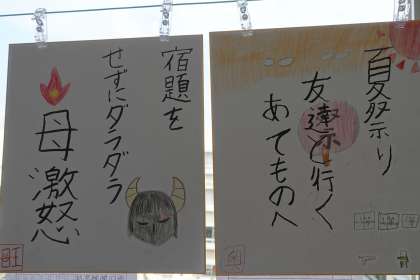 夏祭り
友達と行く
あてものへ
宿題を
せずにダラダラ
母激怒